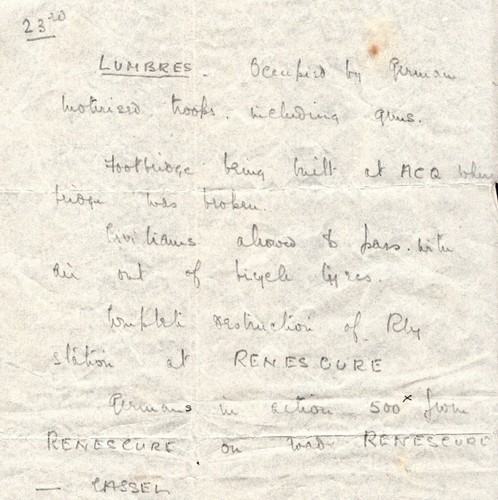 23²⁰
LUMBRES. Occupied by German
motorised troops. including guns.
Footbridge being built at ACQ when
bridge was broken.
Civilians allowed to pass. with
air out of bicycle tyres.
Complete destruction of Rly
station at RENESCURE
Germans in action 500ˣ from
RENESCURE on road RENESCURE
— CASSEL